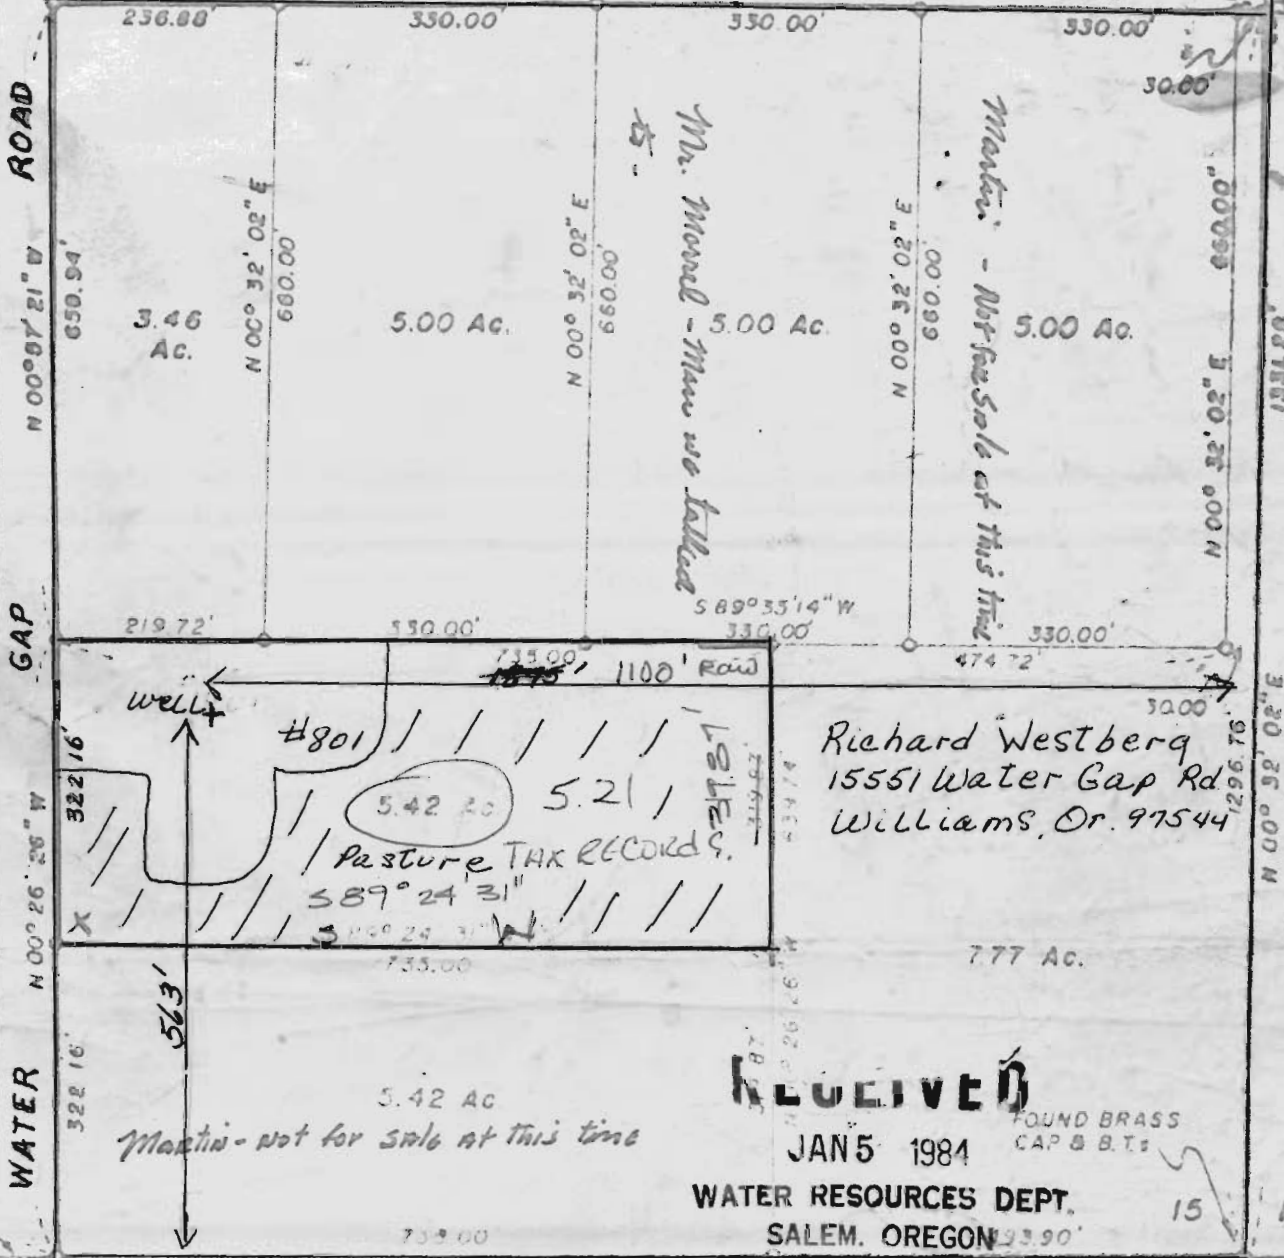 236.88'
330.00'
330.00'
330.00'
30.00'
WATER GAP ROAD
N 00° 07' 21" W
650.94'
3.46
Ac.
N 00° 32' 02" E
660.00'
5.00 Ac.
N 00° 32' 02" E
660.00'
Mr. Morrel - Man we talked
to -
5.00 Ac.
N 00° 32' 02" E
660.00'
Martin - Not for Sale at this time
5.00 Ac.
660.00'
N 00° 32' 02" E
219.72'
330.00'
S 89° 35' 14" W
330.00'
330.00'
735.00
1100' Row
474.72'
30.00'
well
#801
322.16'
N 00° 26' 26" W
5.42 Ac
5.21
319.87'
Pasture TAX RECORDS.
S 89° 24' 31"
S 89° 24' 31" W
X
735.00
Richard Westberg
15551 Water Gap Rd.
Williams, Or. 97544
1296.76'
N 00° 32' 02" E
7.77 Ac.
563'
322.16'
5.42 AC
Martin - not for sale at this time
RECEIVED
JAN 5 1984
WATER RESOURCES DEPT.
SALEM. OREGON
FOUND BRASS
CAP & B.T.s
15
735.00